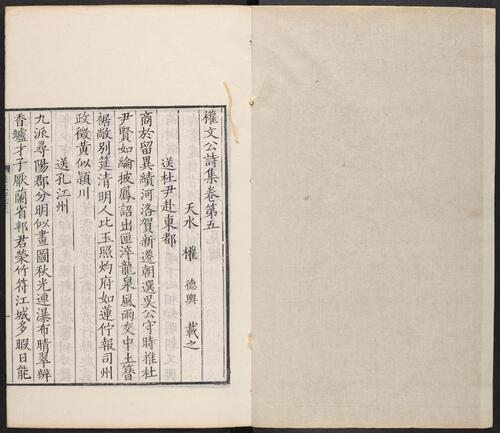 權文公詩集卷第五
天水 權 德輿 載之
送杜尹赴東都
商於留異績河洛賀新遷朝選吳公守時推杜
尹賢如綸披鳳詔出匣淬龍泉風雨交中土簪
裾敞別筵清明人比玉照灼府如蓮佇報司州
政徵黃似潁川
送孔江州
九派尋陽郡分明似畫圖秋光連瀑布晴翠辨
香爐才子厭蘭省邦君榮竹符江城多暇日能